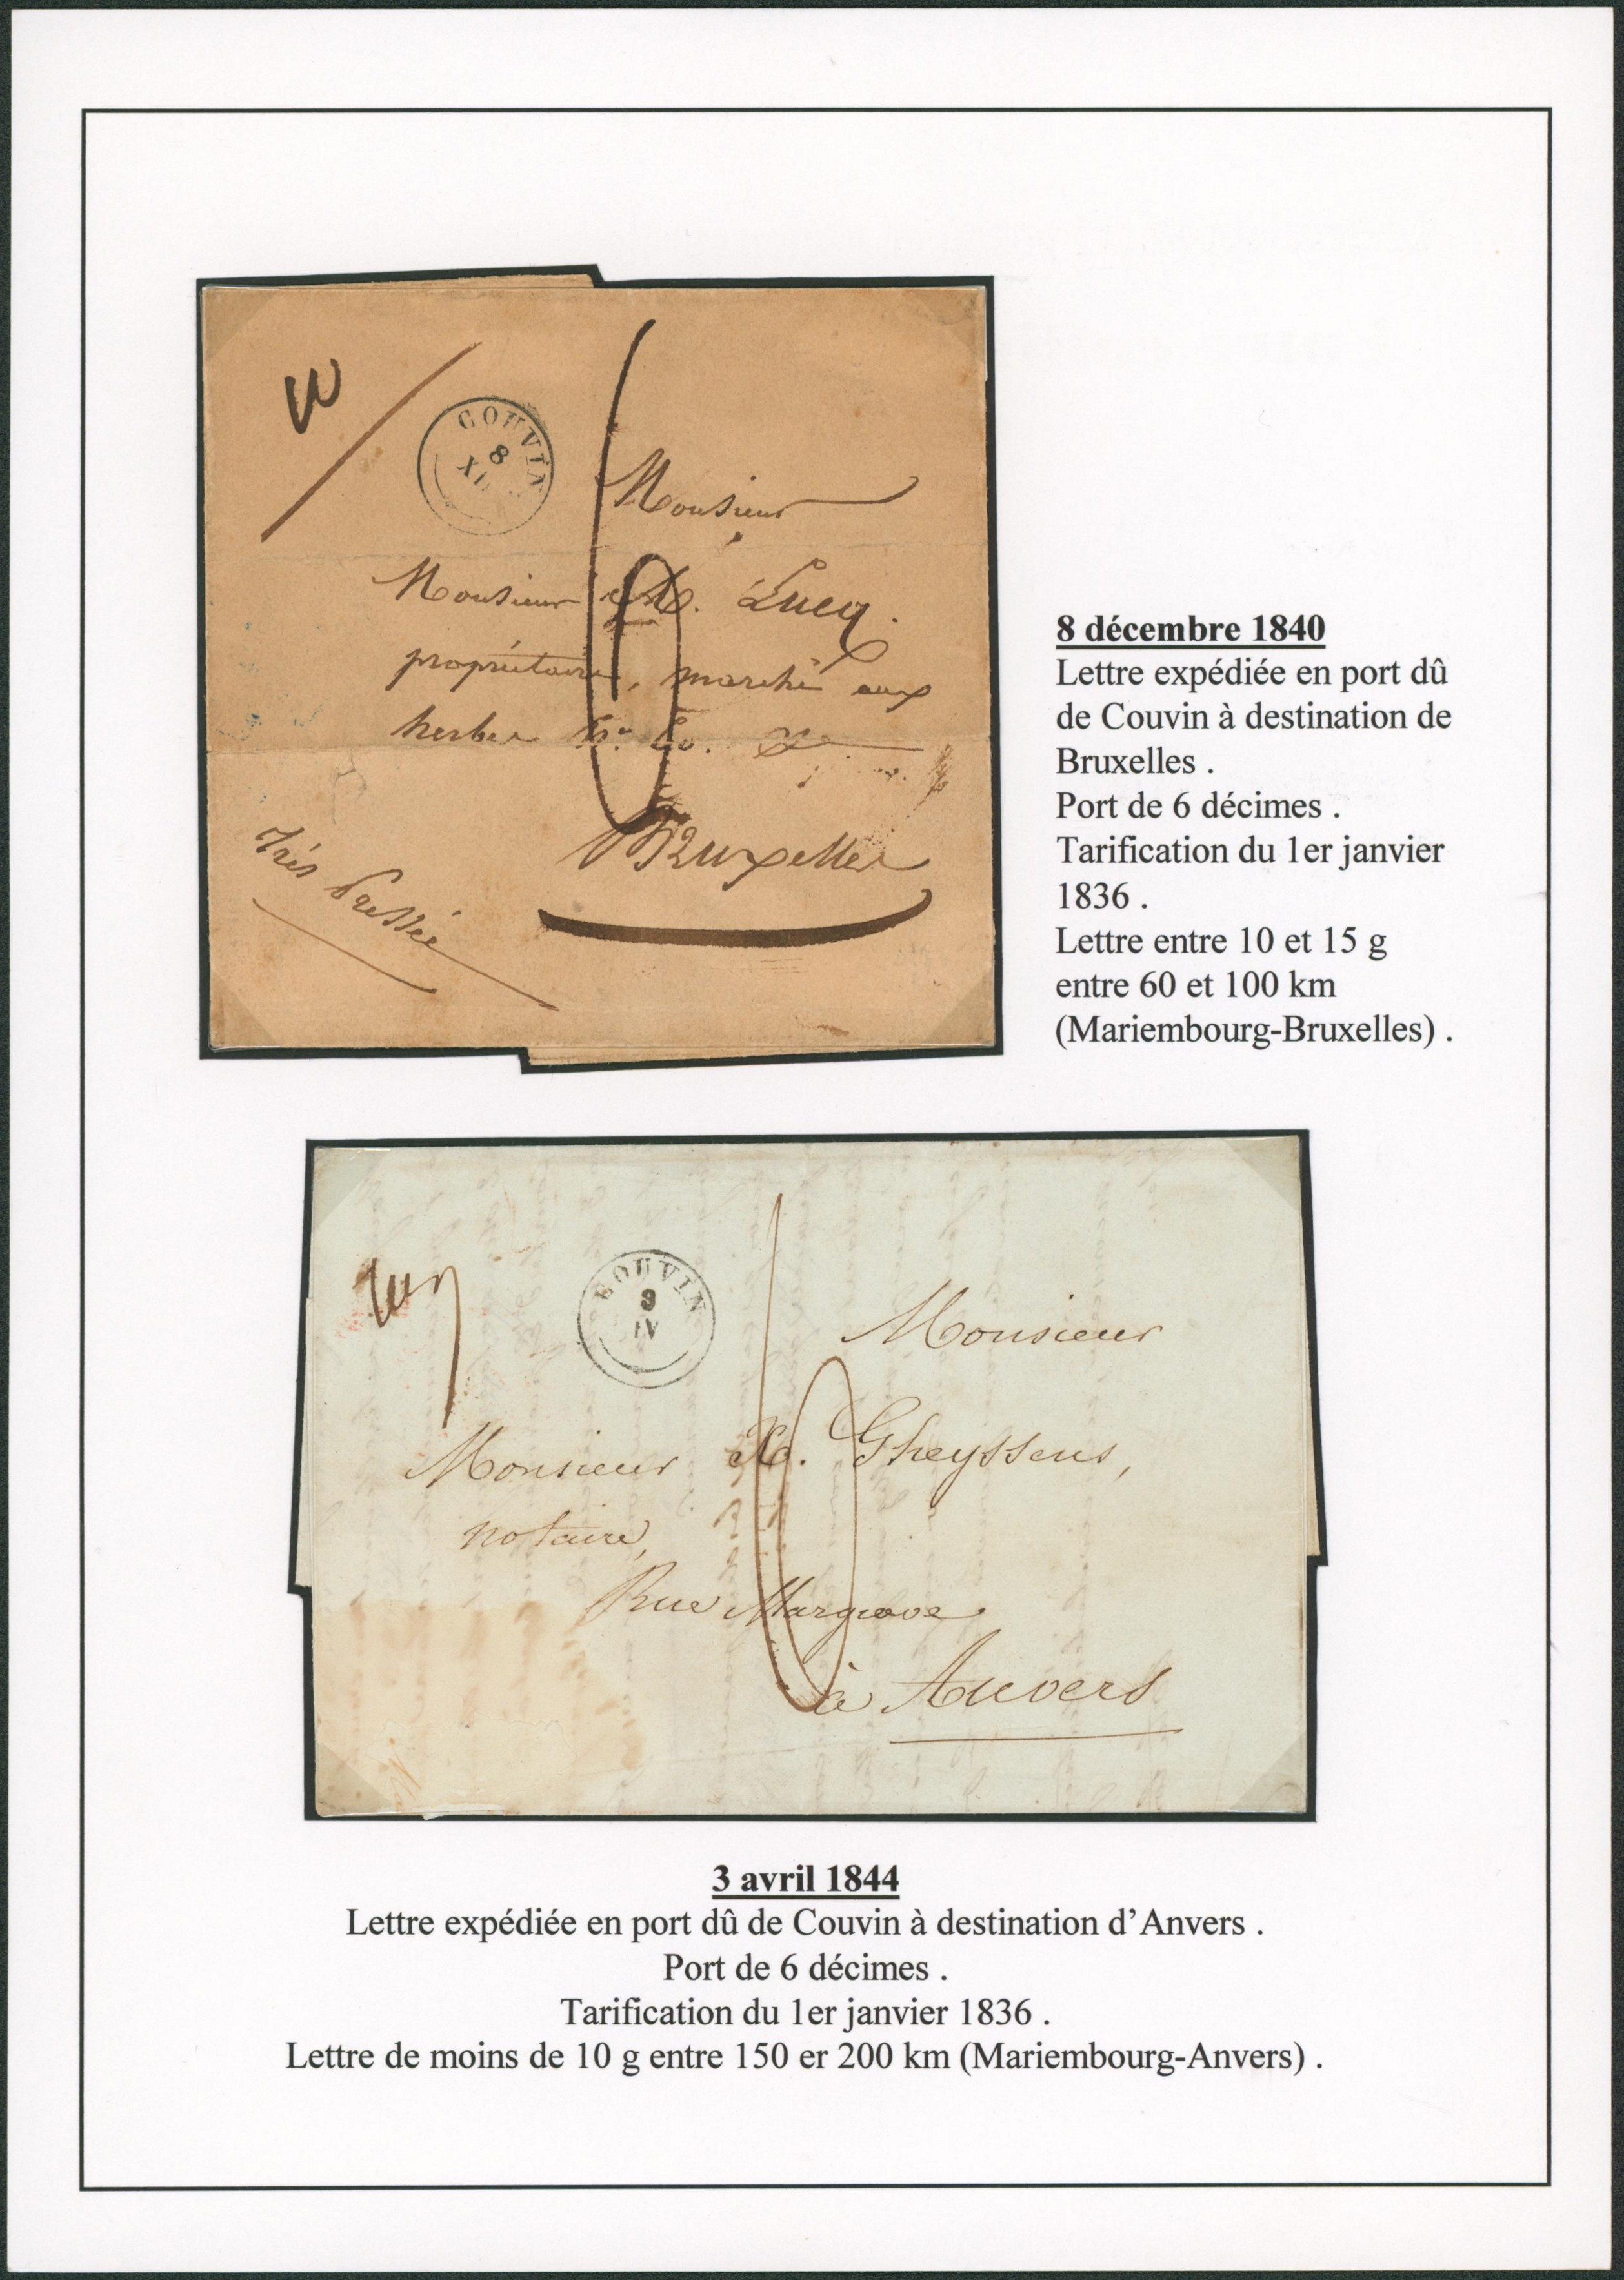 COUVIN
8
XII
Monsieur
Monsieur Lucq.
propriétaire, marché aux
herbes
Bruxelles
très Pressée
6
8 décembre 1840
Lettre expédiée en port dû
de Couvin à destination de
Bruxelles .
Port de 6 décimes .
Tarification du 1er janvier
1836 .
Lettre entre 10 et 15 g
entre 60 et 100 km
(Mariembourg-Bruxelles) .
COUVIN
3
IV
6
Monsieur
Monsieur X. Gheyssens,
notaire,
Rue Margrave
à Anvers
3 avril 1844
Lettre expédiée en port dû de Couvin à destination d’Anvers .
Port de 6 décimes .
Tarification du 1er janvier 1836 .
Lettre de moins de 10 g entre 150 er 200 km (Mariembourg-Anvers) .